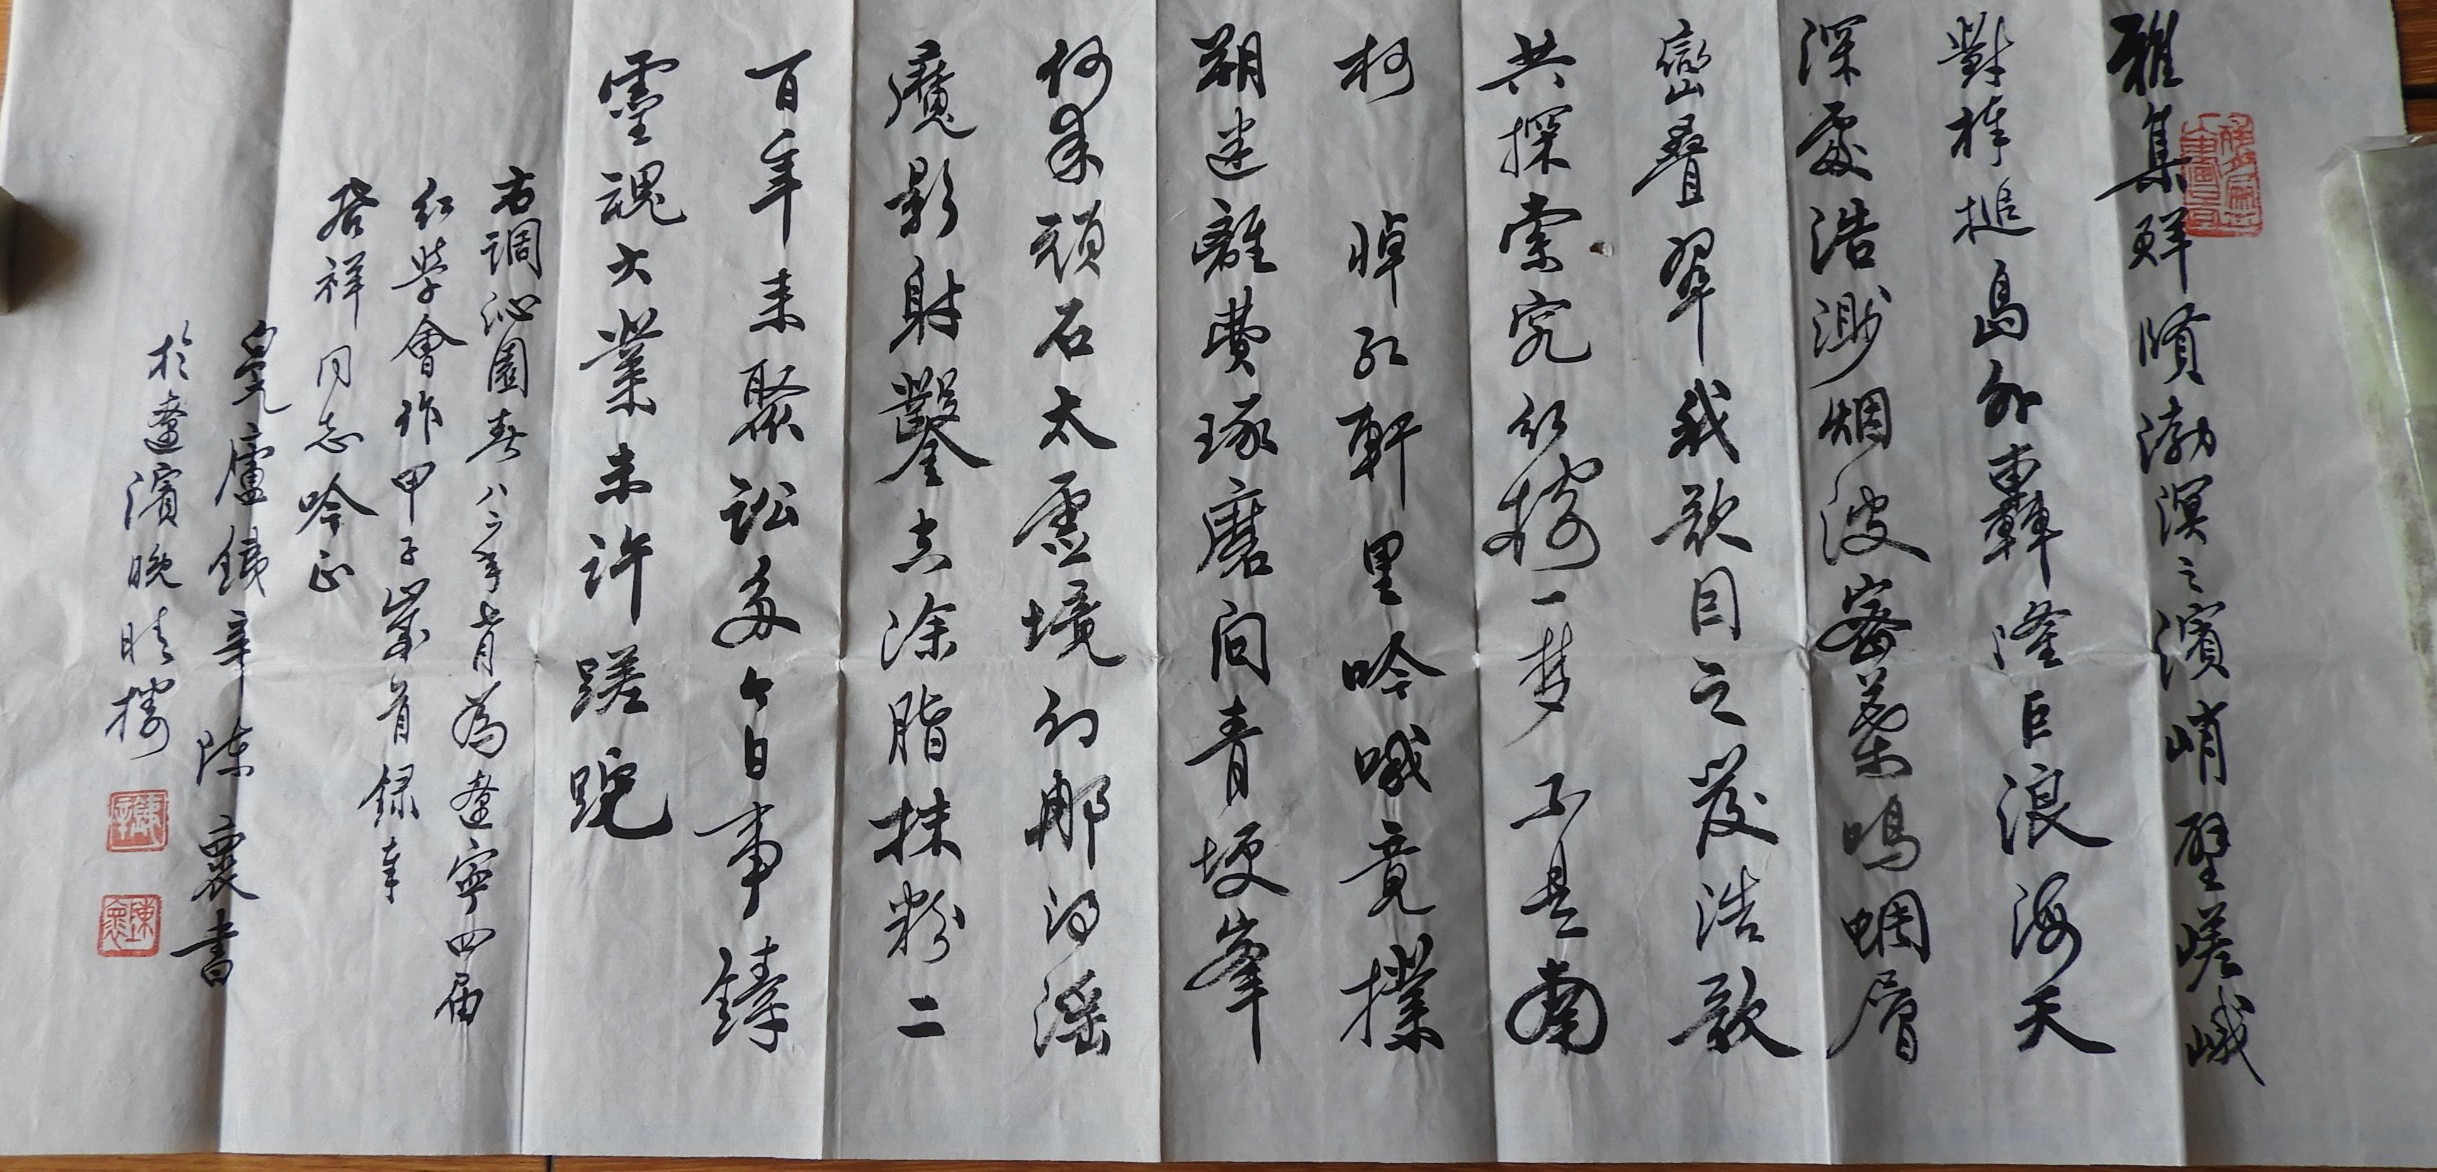 雅集群賢渤溟之濱峭壁嵯峨
對棒槌島外轟隆巨浪海天
深處浩渺烟波密葉鳴蜩層
巒疊翠我欲目之發浩歌
共探索究紅樓一梦不是南
柯 悼紅軒里吟哦竟撲
朔迷離費琢磨问青埂峯
何来頑石太虛境幻那的
魔影射鑿空涂脂抹粉二
百年来聚訟多今日事鑄
靈魂大業未許蹉跎
右調沁園春八二年七月為遼寧四屆
紅學會作甲子歲首録奉
啓祥同志吟正
廬鐵辛陳襄書
於遼濱晚晴樓